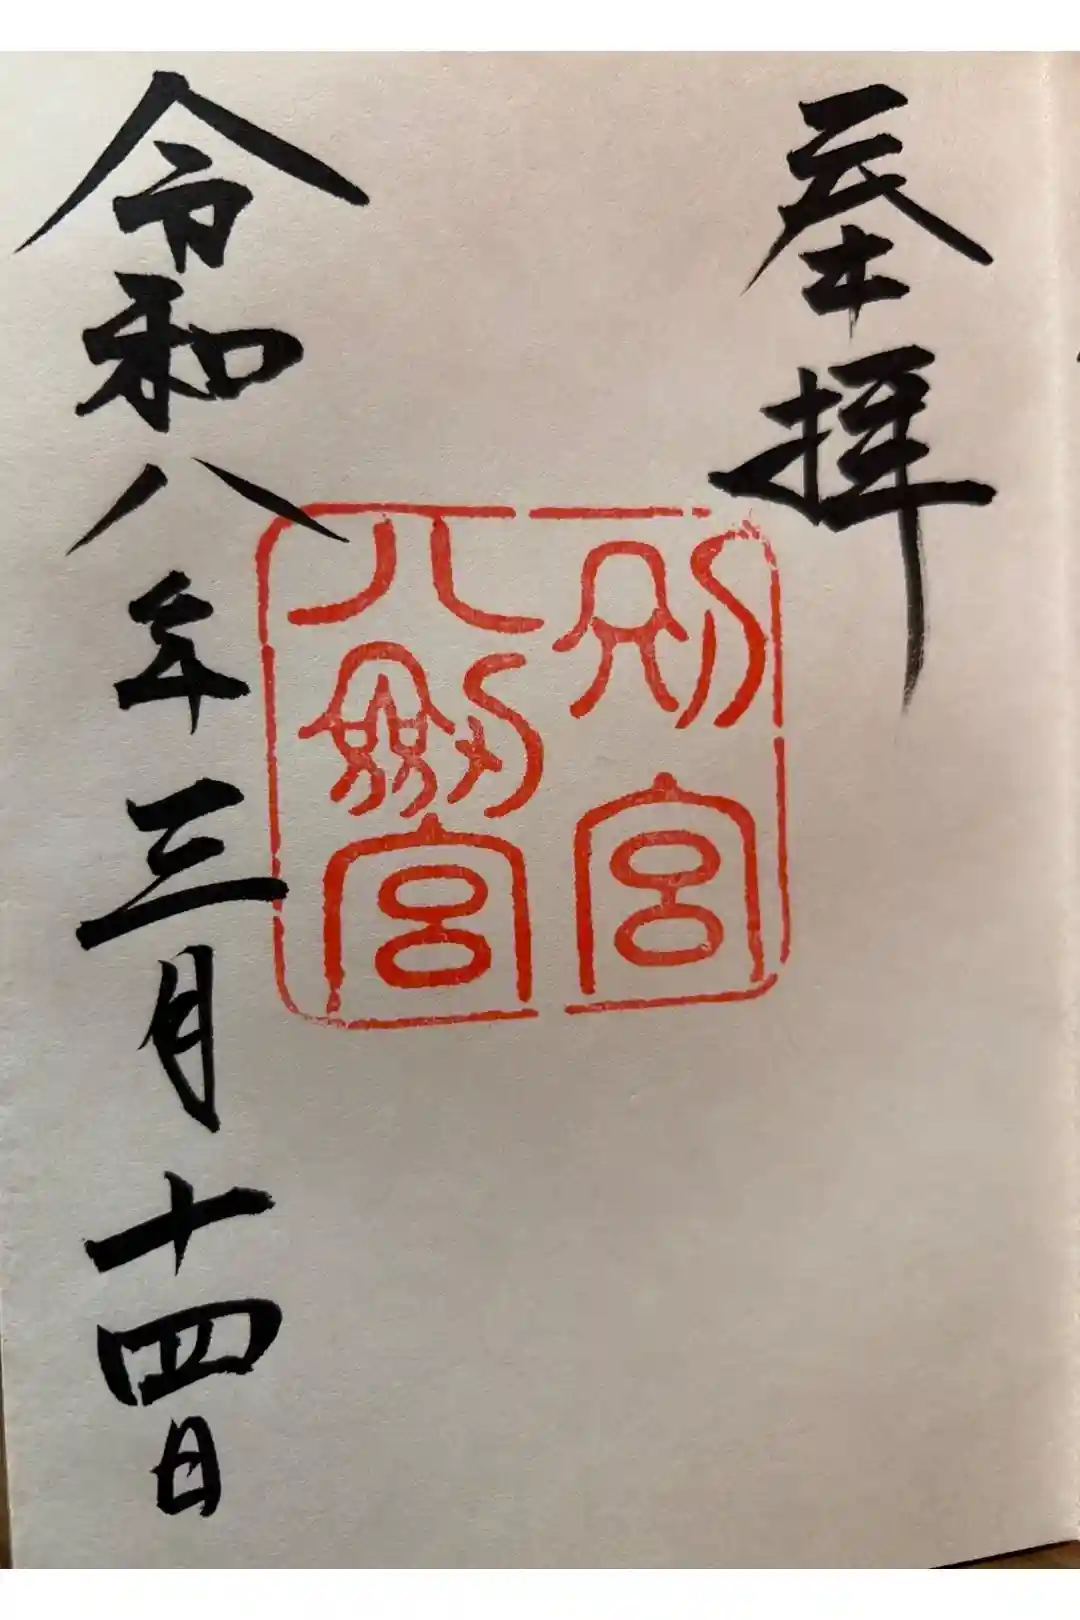 奉拝
別宮
八劒宮
令和八年三月十四日